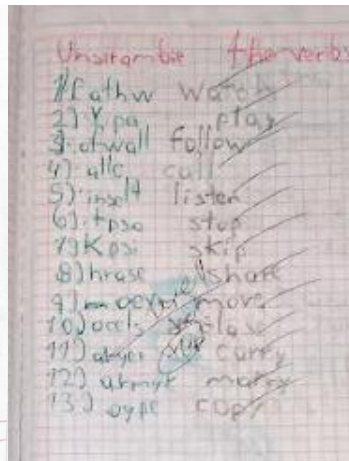 Unscramble the verbs
1) athw watch
2) Ypa play
3. otwall follow
4) allc call
5) inselt listen
6) tpso stop
7) Kpsi skip
8) hrase share
9) move
10) ocels close
11) carry
12) marry
13) oype copy